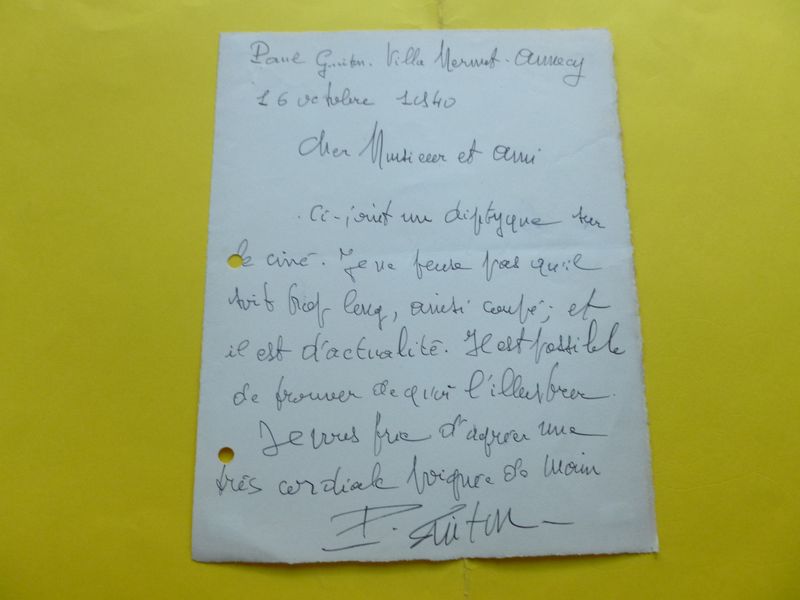 Paul Guiton. Villa Mermet. Annecy
16 octobre 1940
Cher Monsieur et ami
Ci-joint un diptyque sur
le ciné. Je ne pense pas qu'il
soit trop long, ainsi coupé; et
il est d'actualité. Il est possible
de trouver de quoi l'illustrer.
Je vous prie d'agréer une
très cordiale poignée de main
P. Guiton